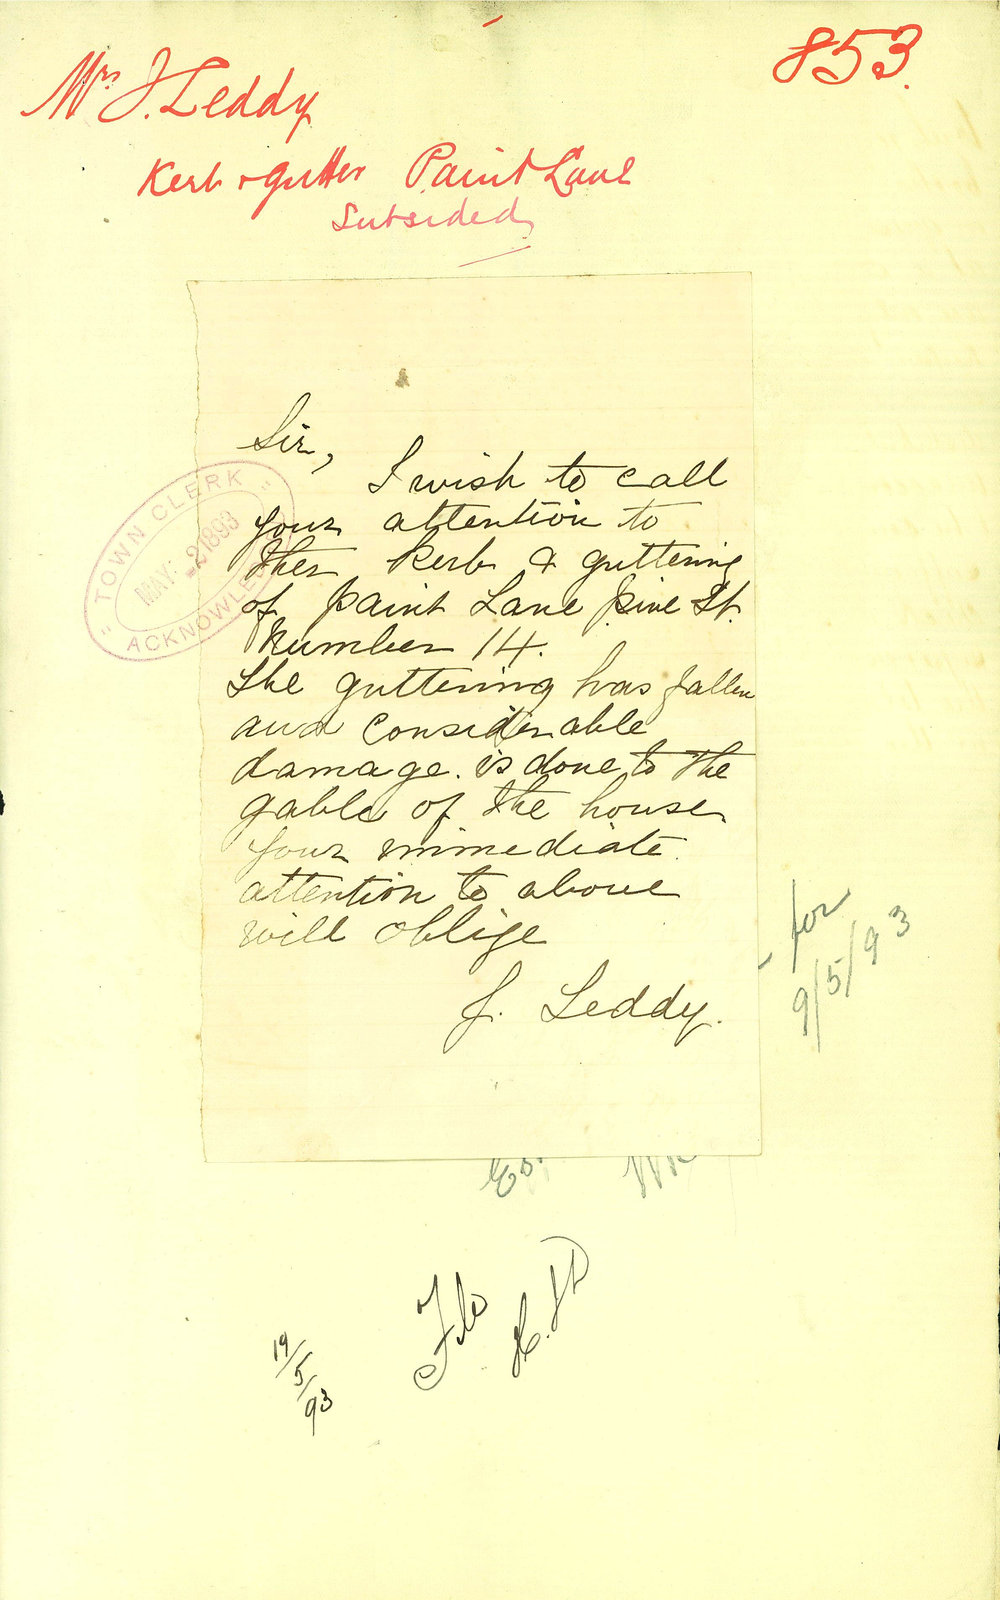 853.
Mrs J. Leddy
Kerb & gutter Paint Lane
Subsided
Sir,
I wish to call
your attention to
ther kerb & guttering
of Paint Lane Pine St.
Number 14.
The guttering has fallen
and considerable
damage. is done to the
gable of the house
Your immediate
attention to above
will oblige
J. Leddy.
TOWN CLERK
MAY. 2 1893
ACKNOWLE
for
9/5/93
File
19/5/93